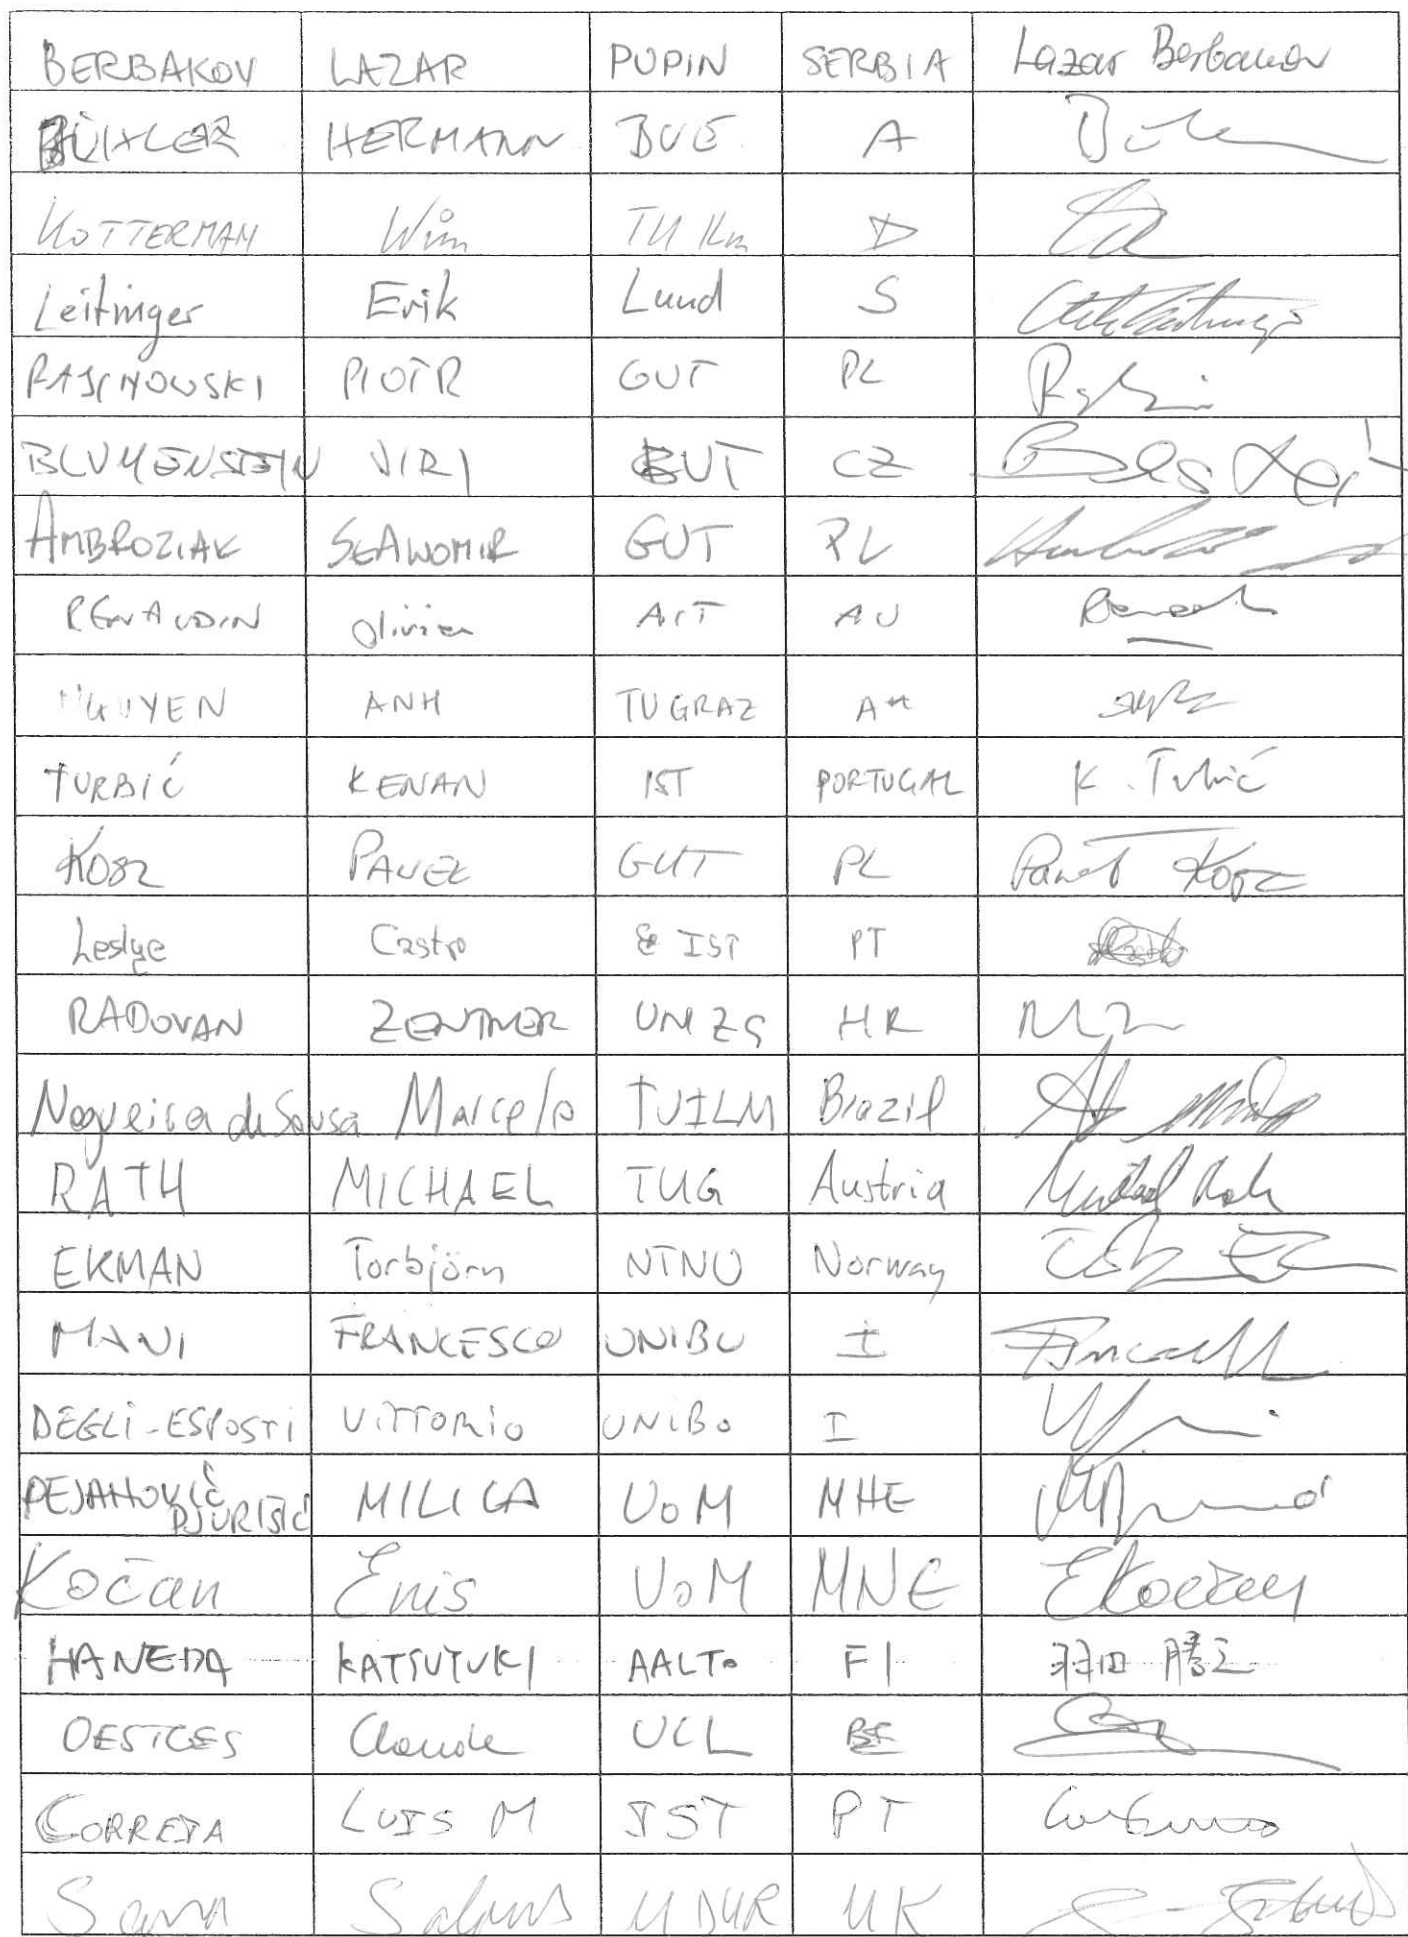 BERBAKOV LAZAR PUPIN SERBIA Lazar Berbakov
BÜHLER HERMANN BUE A
KOTTERMAN Wim TU Ilm D
Leitinger Erik Lund S
PIOTR GUT PL
BLUMENSTEIN JIRI BUT CZ
AMBROZIAK SŁAWOMIR GUT PL
RENAUDIN Olivier AIT AU
NGUYEN ANH TUGRAZ
TURBIĆ KENAN IST PORTUGAL K. Turbić
KOSZ PAWEŁ GUT PL Paweł Kosz
Leslye Castro IST PT
RADOVAN ZENTNER UNIZG HR
Nogueira de Sousa Marcelo TUILM Brazil
RATH MICHAEL TUG Austria Michael Rath
EKMAN Torbjörn NTNU Norway
MANI FRANCESCO UNIBO I
DEGLI-ESPOSTI VITTORIO UNIBO I
PEJANOVIĆ
DJURIŠIĆ MILICA UoM MNE
Kočan Enis UoM MNE EKočan
HANEDA KATSUYUKI AALTO FI 羽田 勝之
OESTGES Claude UCL BE
CORREIA LUIS M IST PT
Sana Salous UDUR UK